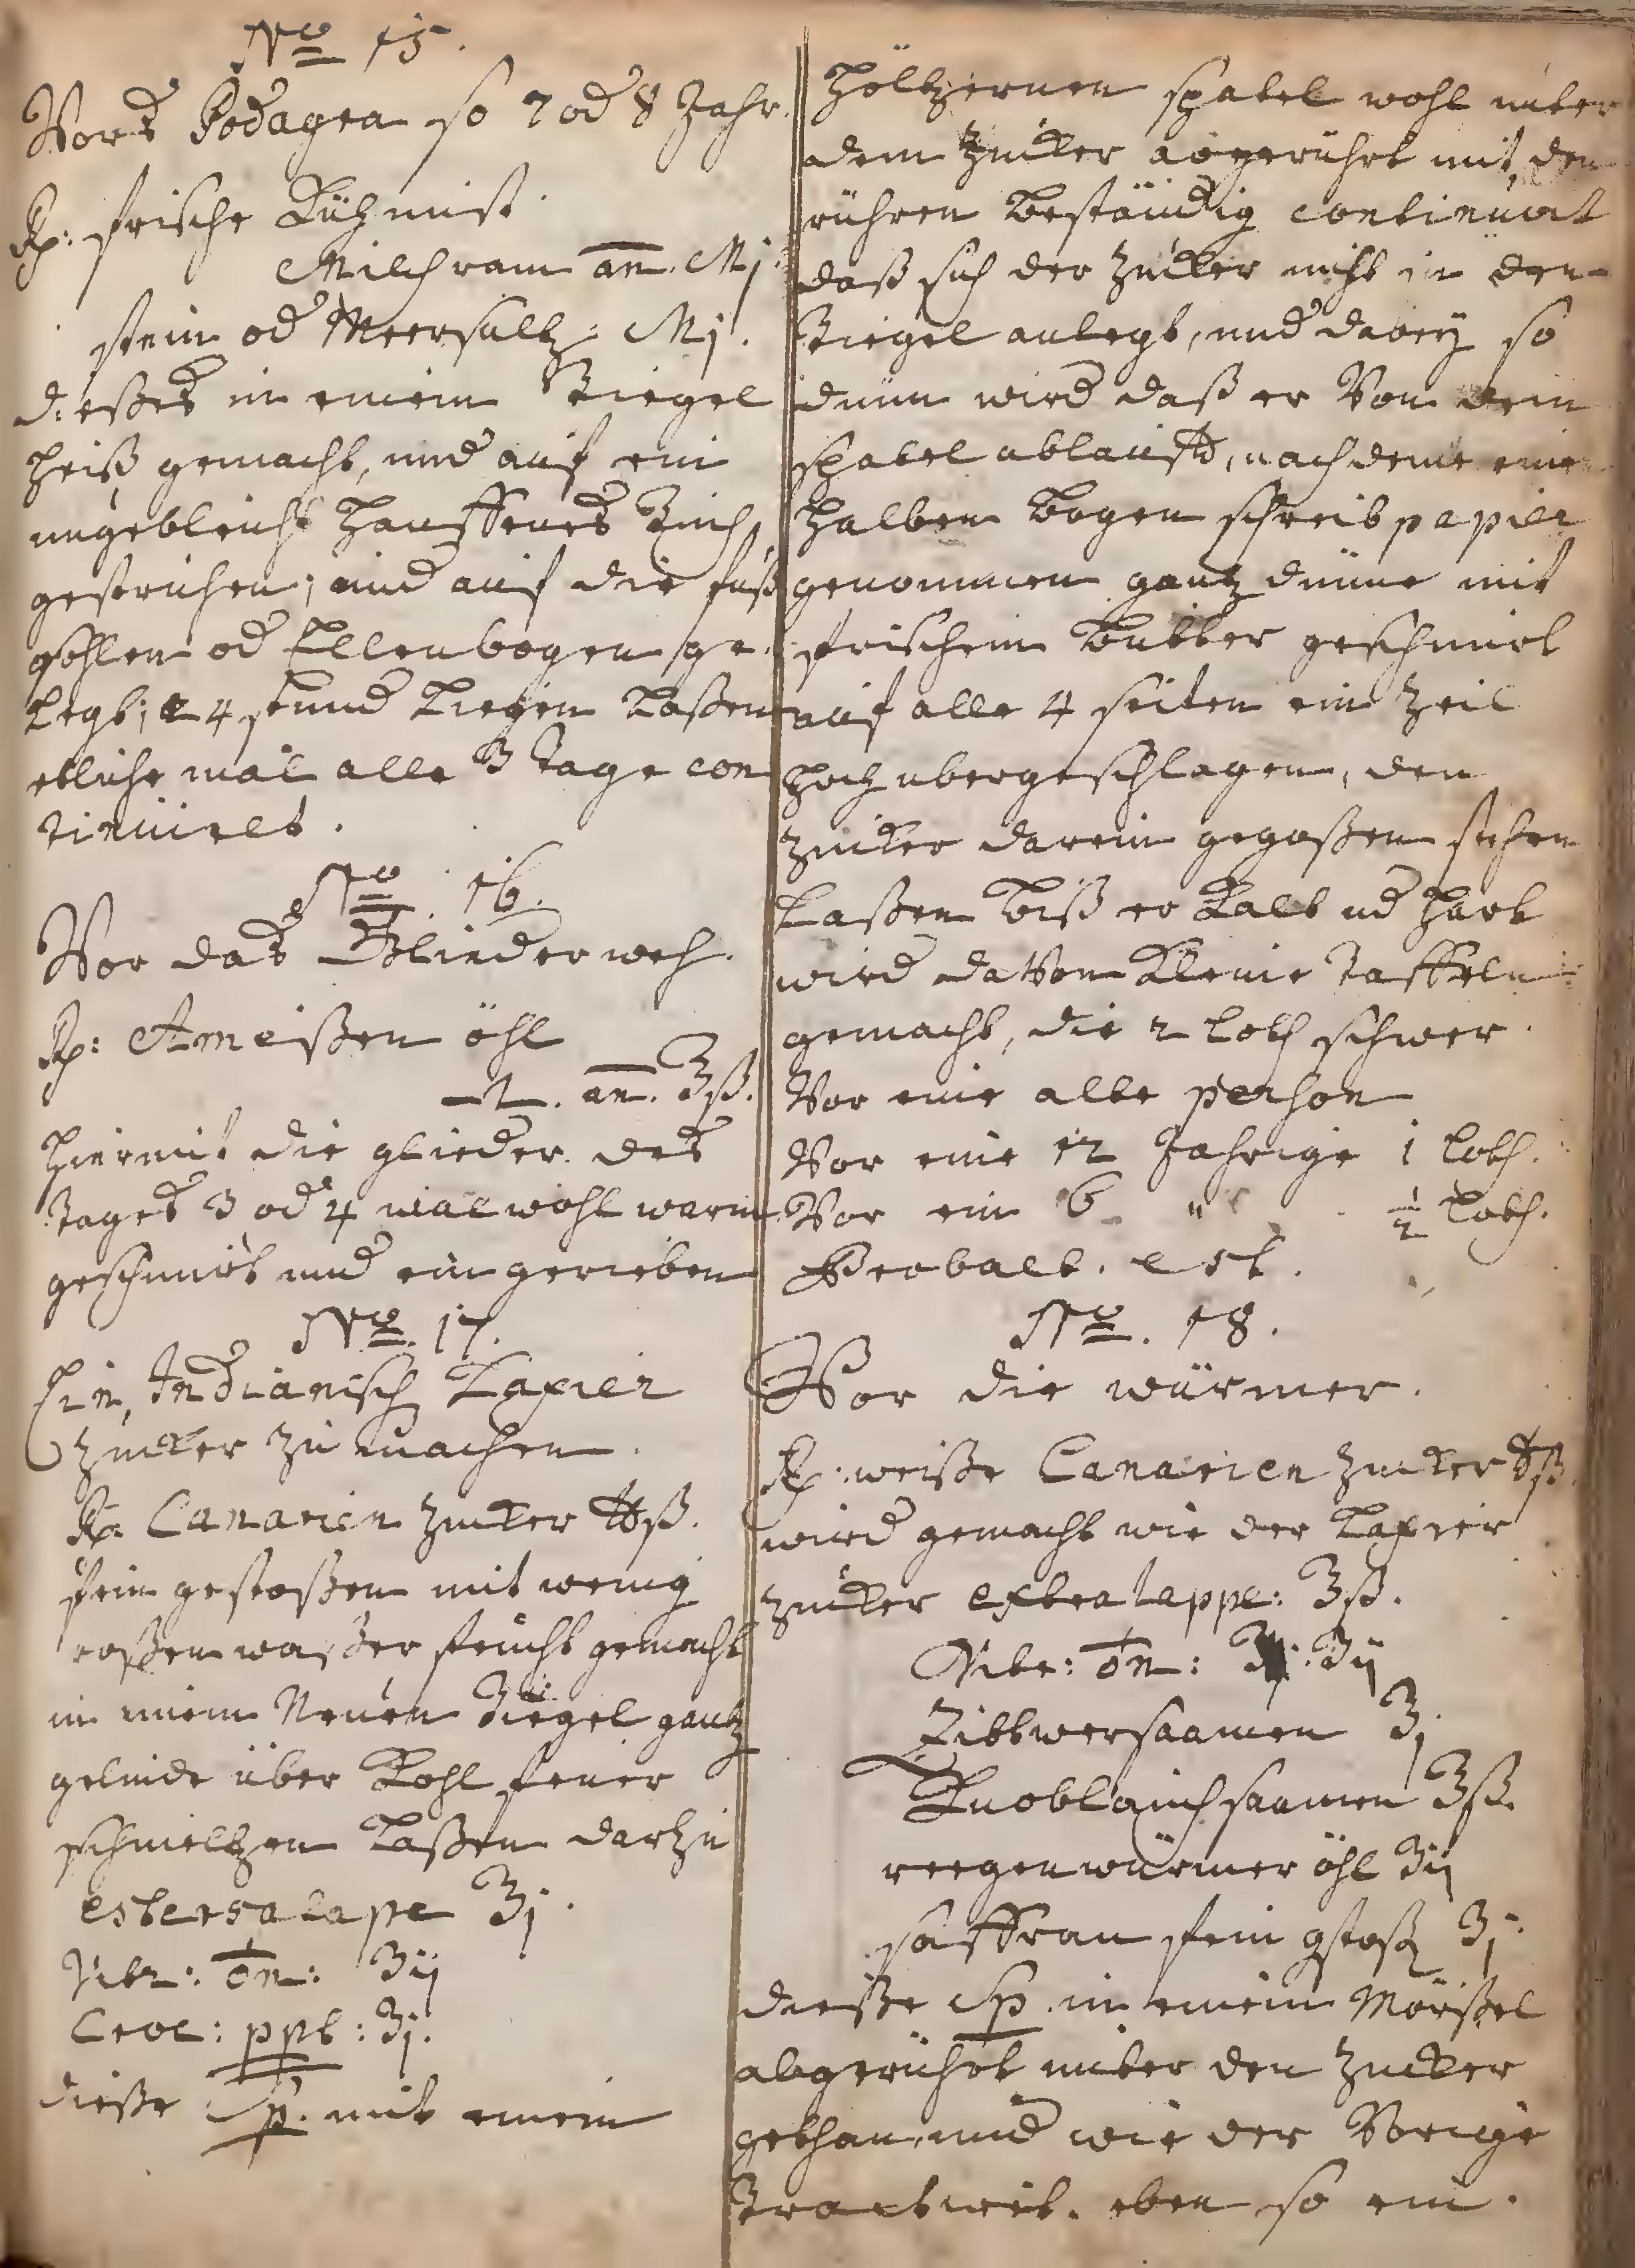 No 15.
Vors Podagra so 7 od 8 Jahr.
Rp: frische Kühmist.
Milchram an. Mj
stein od Meersaltz: Mj.
dießes in einem Tiegel
heiß gemacht, und auf ein
ungebleicht hanffenes Tuch
gestrichen, und auf die fuß
sohlen od Ellenbogen ge-
legt; 24 stund Liegen Laßen
etliche mal alle 3 tage con
tinuirt.
No. 16.
Vor das Gliederweh.
Rp: Ameißen öhl
an. ʒß.
hiermit die glieder des
tages 3 od 4 mal wohl warm
geschmirt und ein gerieben
No. 17.
Ein, Indianisch Laxier
zucker zu machen.
Rp. Canarien zucker ℔ß.
fein gestoßen mit wenig
roßen waßer feucht gemacht
in einem Neuen Tiegel gantz
gelinde über Kohl feuer
schmeltzen Laßen dartzu
ʒj.
Nitr: ʒij
Croc: ppt: ʒj.
dieße Sp. mit einem
höltzernen spatel wohl unter
dem zucker abgerührt mit, den
rühren Beständig continuirt
daß sich der zucker nicht in den
Tiegel anlegt, und dabeÿ so
dünn wird daß er Von dem
spatel ablaufft, nach deme eine
halben Bogen schreib papier
genommen gantz dünne mit
frischem Butter geschmirt
auf alle 4 seiten ein Zeil
hoch ubergeschlagen, den
zucker darein gegoßen stehen
Laßen biß er Kalt ud hart
wird daVon Kleine Taffeln
gemacht, die 2 loth schwer.
Vor eine alte person
Vor eine 12 Jahrige 1 loth.
Vor ein 6 " ½ loth.
Probatt. est.
No. 18.
Vor die würmer.
Rp: weiße Canarien zucker ℔ß.
wird gemacht wie der Laxier
zucker ʒß.
Nitr: ʒij
Zittwersaamen ʒj
Knoblauch saamen ʒß.
reegenwürmer öhl ʒij
saffran fein gstoß ʒj.
dieße Sp. in einem Mörßel
abgerührt unter den zucker
gethan, und wie der Vorige
tractirt. eben so ein.